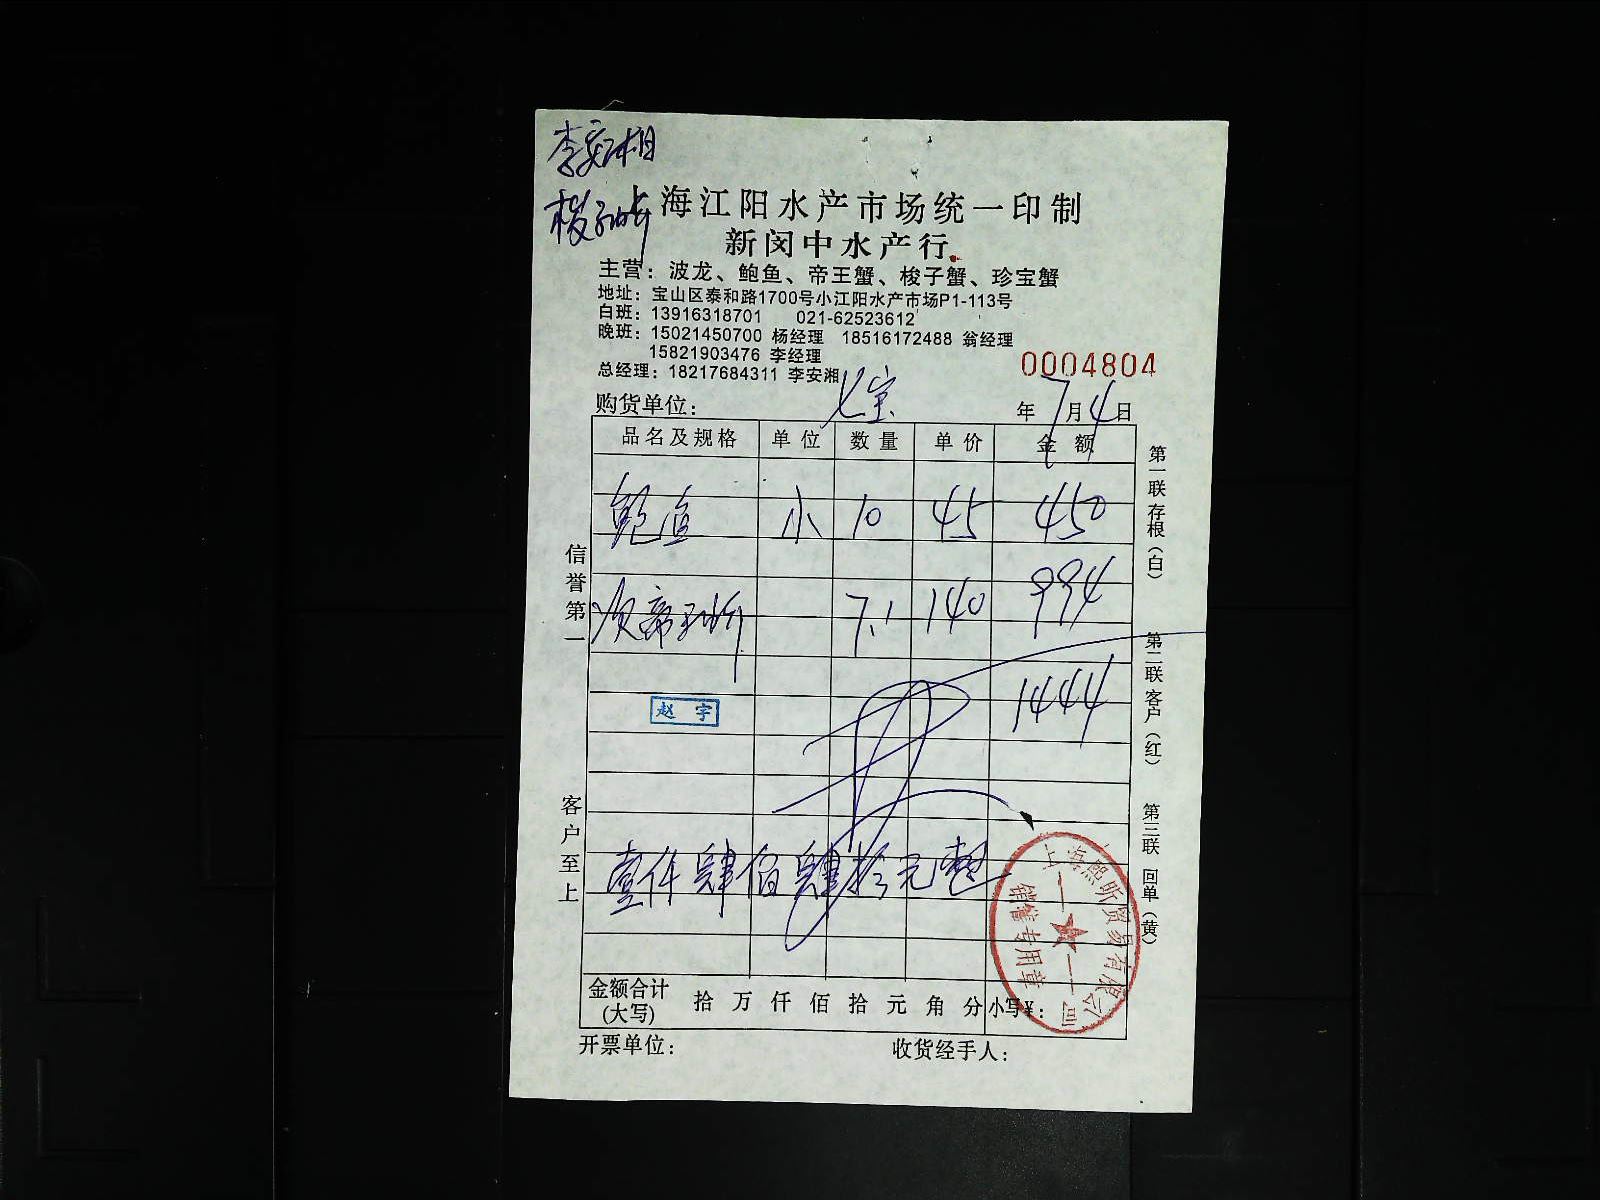 李安相
梭子蟹
上海江阳水产市场统一印制
新闵中水产行
主营：波龙、鲍鱼、帝王蟹、梭子蟹、珍宝蟹
地址：宝山区泰和路1700号小江阳水产市场P1-113号
白班：13916318701 021-62523612
晚班：15021450700 杨经理 18516172488 翁经理
15821903476 李经理
总经理：18217684311 李安湘
0004804
购货单位： 七宝 年 7 月 4 日
品名及规格 单位 数量 单价 金额
鲍鱼 小 10 45 450
帝王 7.1 140 994
1444
赵宇
壹仟肆佰肆拾元整
金额合计(大写) 拾 万 仟 佰 拾 元 角 分 小写¥：
开票单位： 收货经手人：
信誉第一
客户至上
第一联 存根（白）
第二联 客户（红）
第三联 回单（黄）
上海熙昕贸易有限公司
销售专用章